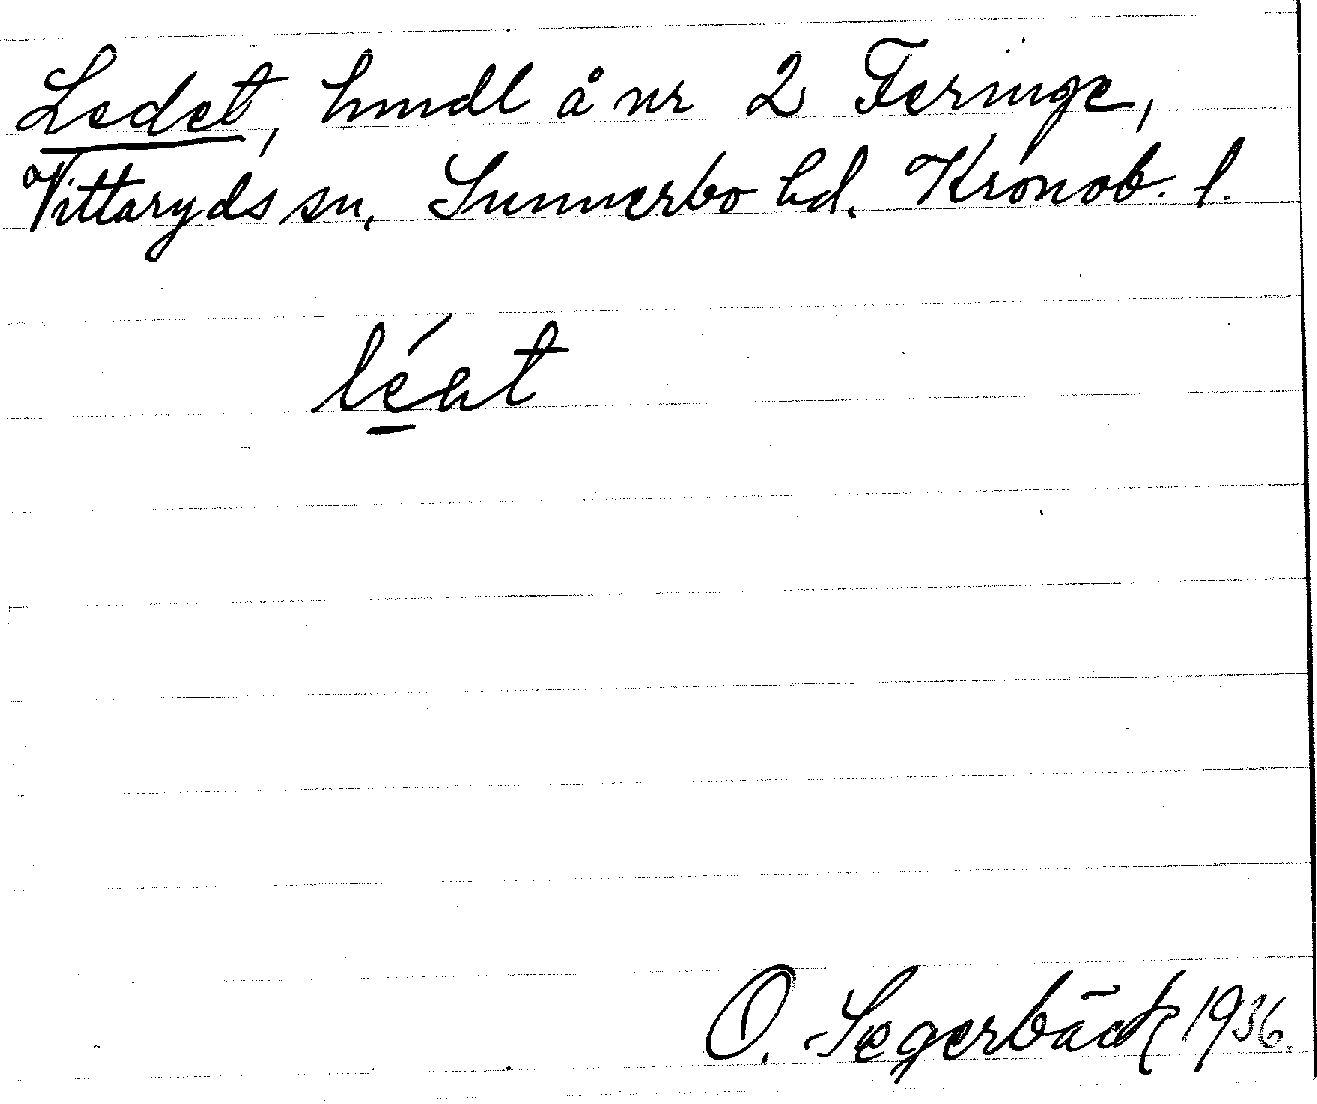 Ledet, hmdl å nr 2 Feringe,
Vittaryds sn, Sunnerbo hd. Kronob. l.
léət
O. Segerbäck 1936.